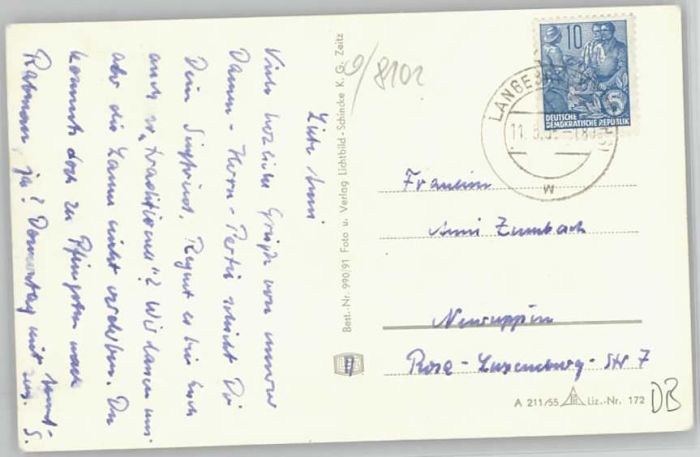 Liebe Anni
Viele herzliche Grüße von unserer
Damm-Horn-Partie schickt Dir
Dein Siegfried. Regnet es bei Euch
auch so „traditionell“? Wir lassen uns
aber die Laune nicht verderben. Du
kommst doch zu Pfingsten nach
ja? Donnerstag mit
S.
9/8101
Best.-Nr. 990/91 Foto u. Verlag Lichtbild-Schincke K. G. Zeitz
10
DEUTSCHE
DEMOKRATISCHE REPUBLIK
5
w
Fräulein
Anni Zumbach
Neuruppin
Rosa-Luxemburg-Str 7
A 211/55 Liz.-Nr. 172
DB